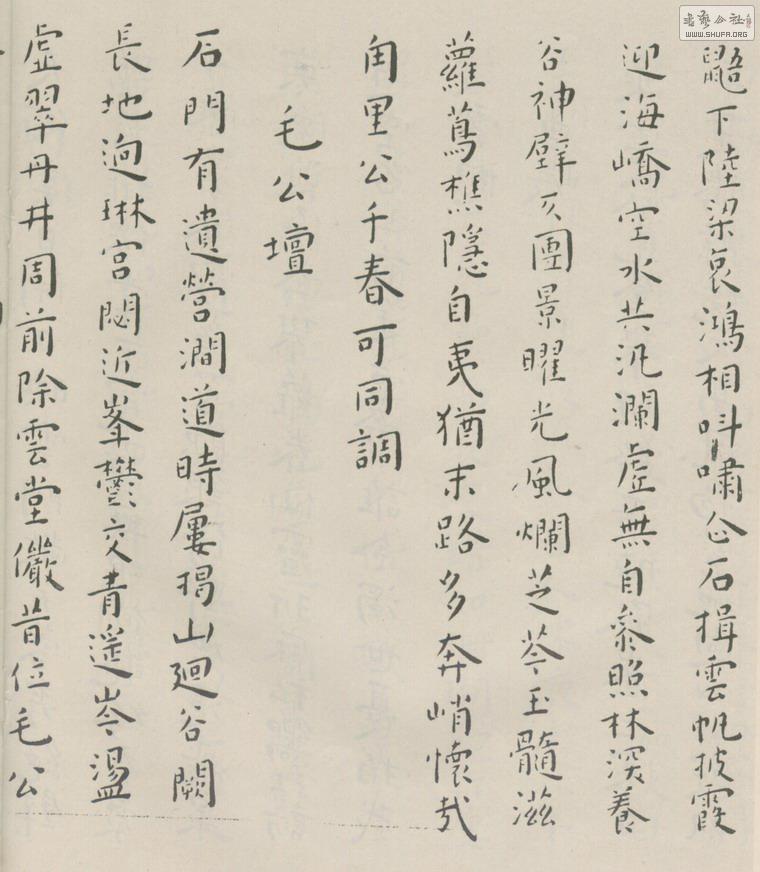 鼯下陸梁哀鴻相叫嘯仚石揖雲帆披霞
迎海嶠空水共汎瀾虛無自參照林深養
谷神壁仄團景曜光風爛芝苓玉髓滋
蘿蔦樵隱自夷猶末路多奔峭懷哉
甪里公千春可同調
毛公壇
石門有遺營澗道時屢揭山迴谷闕
長地迥琳宮閟近峯鬱交青遙岑盪
虛翠丹井周前除雲堂儼昔位毛公
書藝公社
WWW.SHUFA.ORG